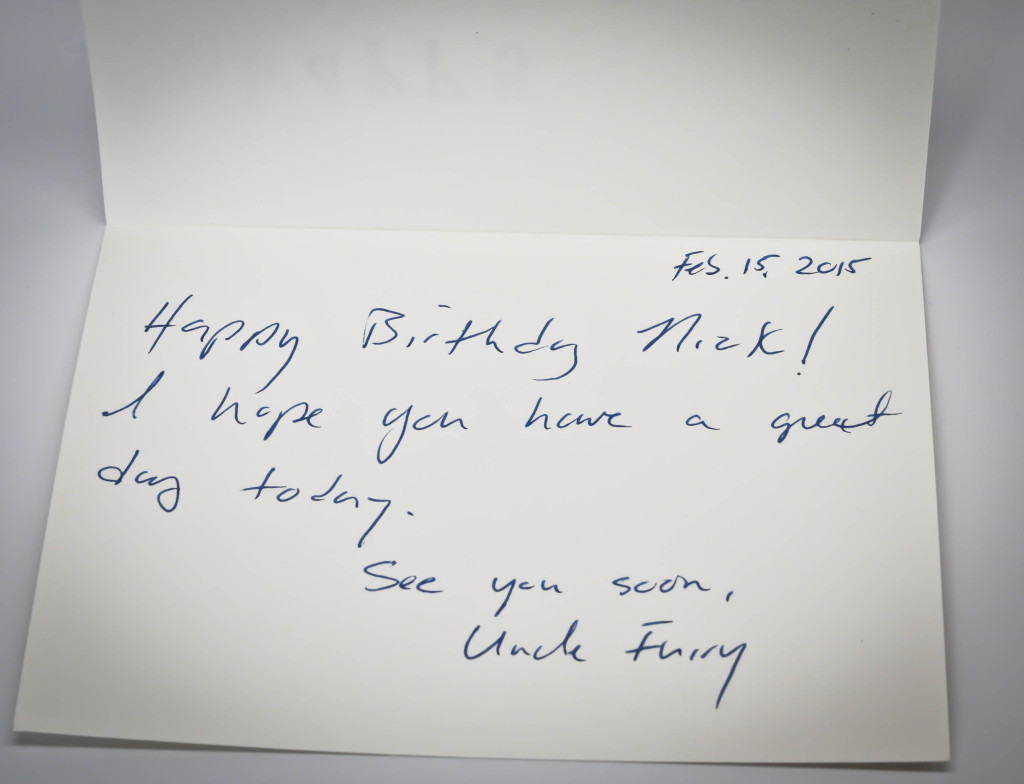 Feb. 15, 2015
Happy Birthday Nick!
I hope you have a great
day today.
See you soon,
Uncle Furry